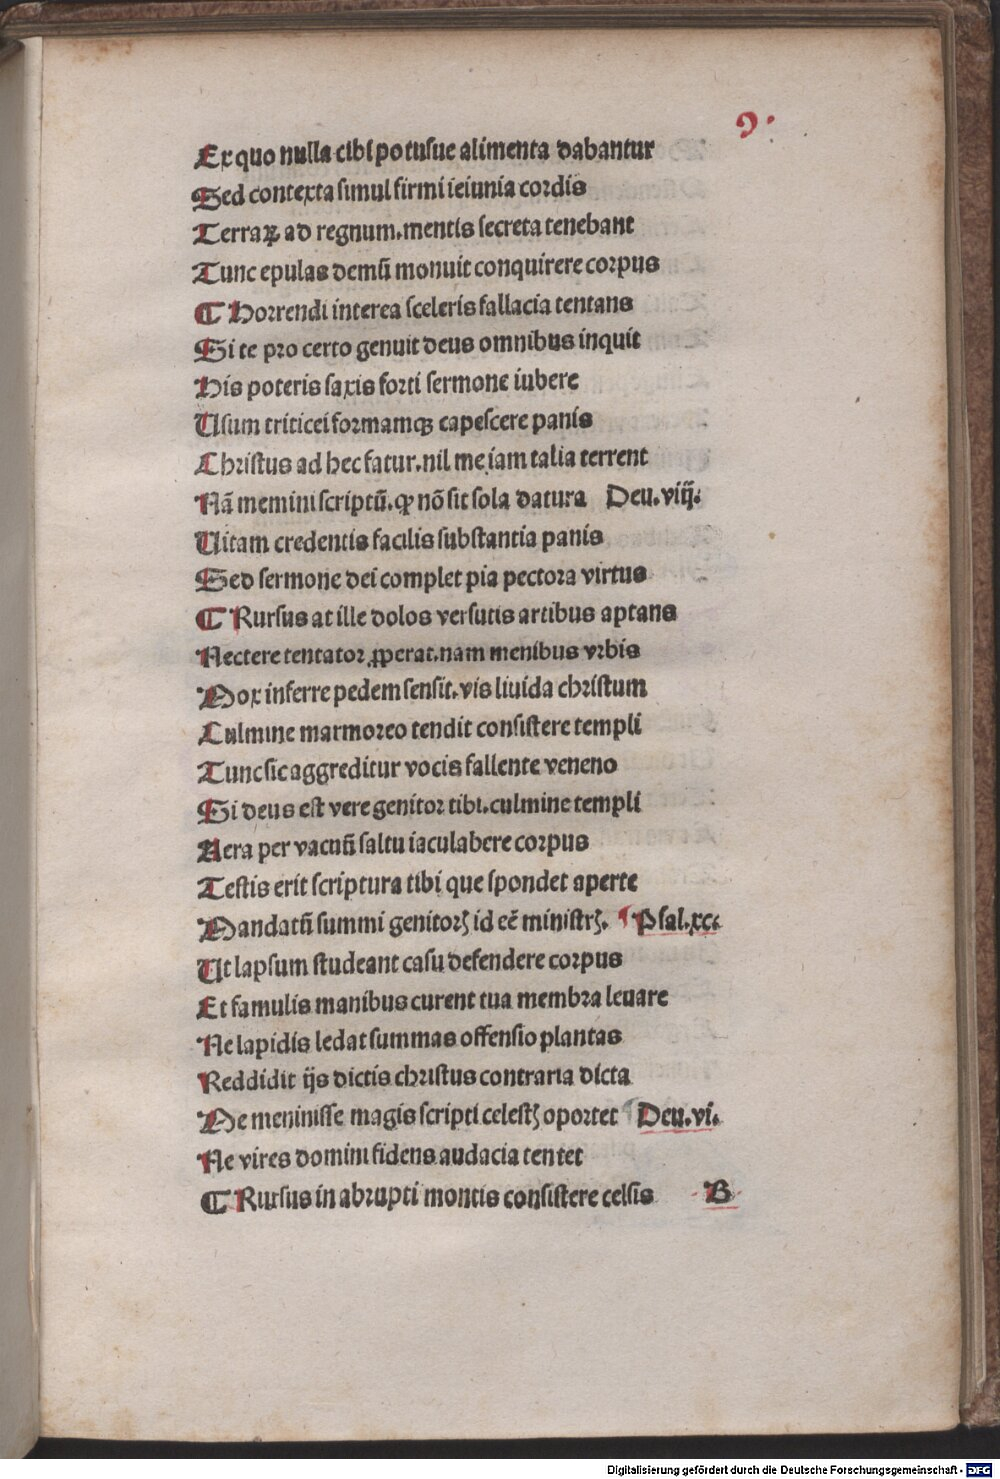 9.
Ex quo nulla cibi potusue alimenta dabantur
Sed contexta simul firmi ieiunia cordis
Terraꝝ ad regnum. mentis secreta tenebant
Tunc epulas demū monuit conquirere corpus
¶ Horrendi interea sceleris fallacia tentans
Si te pro certo genuit deus omnibus inquit
His poteris saxis forti sermone iubere
Usum triticei formamqꝫ capescere panis
Christus ad hec fatur. nil me iam talia terrent
Nā memini scriptū. ꝙ nō sit sola datura Deu. viij.
Uitam credentis facilis substantia panis
Sed sermone dei complet pia pectora virtus
¶ Rursus at ille dolos versutis artibus aptans
Nectere tentator ꝓperat. nam menibus vrbis
Mox inferre pedem sensit. vis liuida christum
Culmine marmoreo tendit consistere templi
Tunc sic aggreditur vocis fallente veneno
Si deus est vere genitor tibi. culmine templi
Aera per vacuū saltu iaculabere corpus
Testis erit scriptura tibi que spondet aperte
Mandatū summi genitorꝭ id eē ministrꝭ. ¶ Psal. xc.
Ut lapsum studeant casu defendere corpus
Et famulis manibus curent tua membra leuare
Ne lapidis ledat summas offensio plantas
Reddidit ijs dictis christus contraria dicta
Me meninisse magis scripti celestꝭ oportet Deu. vi.
Ne vires domini fidens audacia tentet
¶ Rursus in abrupti montis consistere celsis B
Digitalisierung gefördert durch die Deutsche Forschungsgemeinschaft - DFG